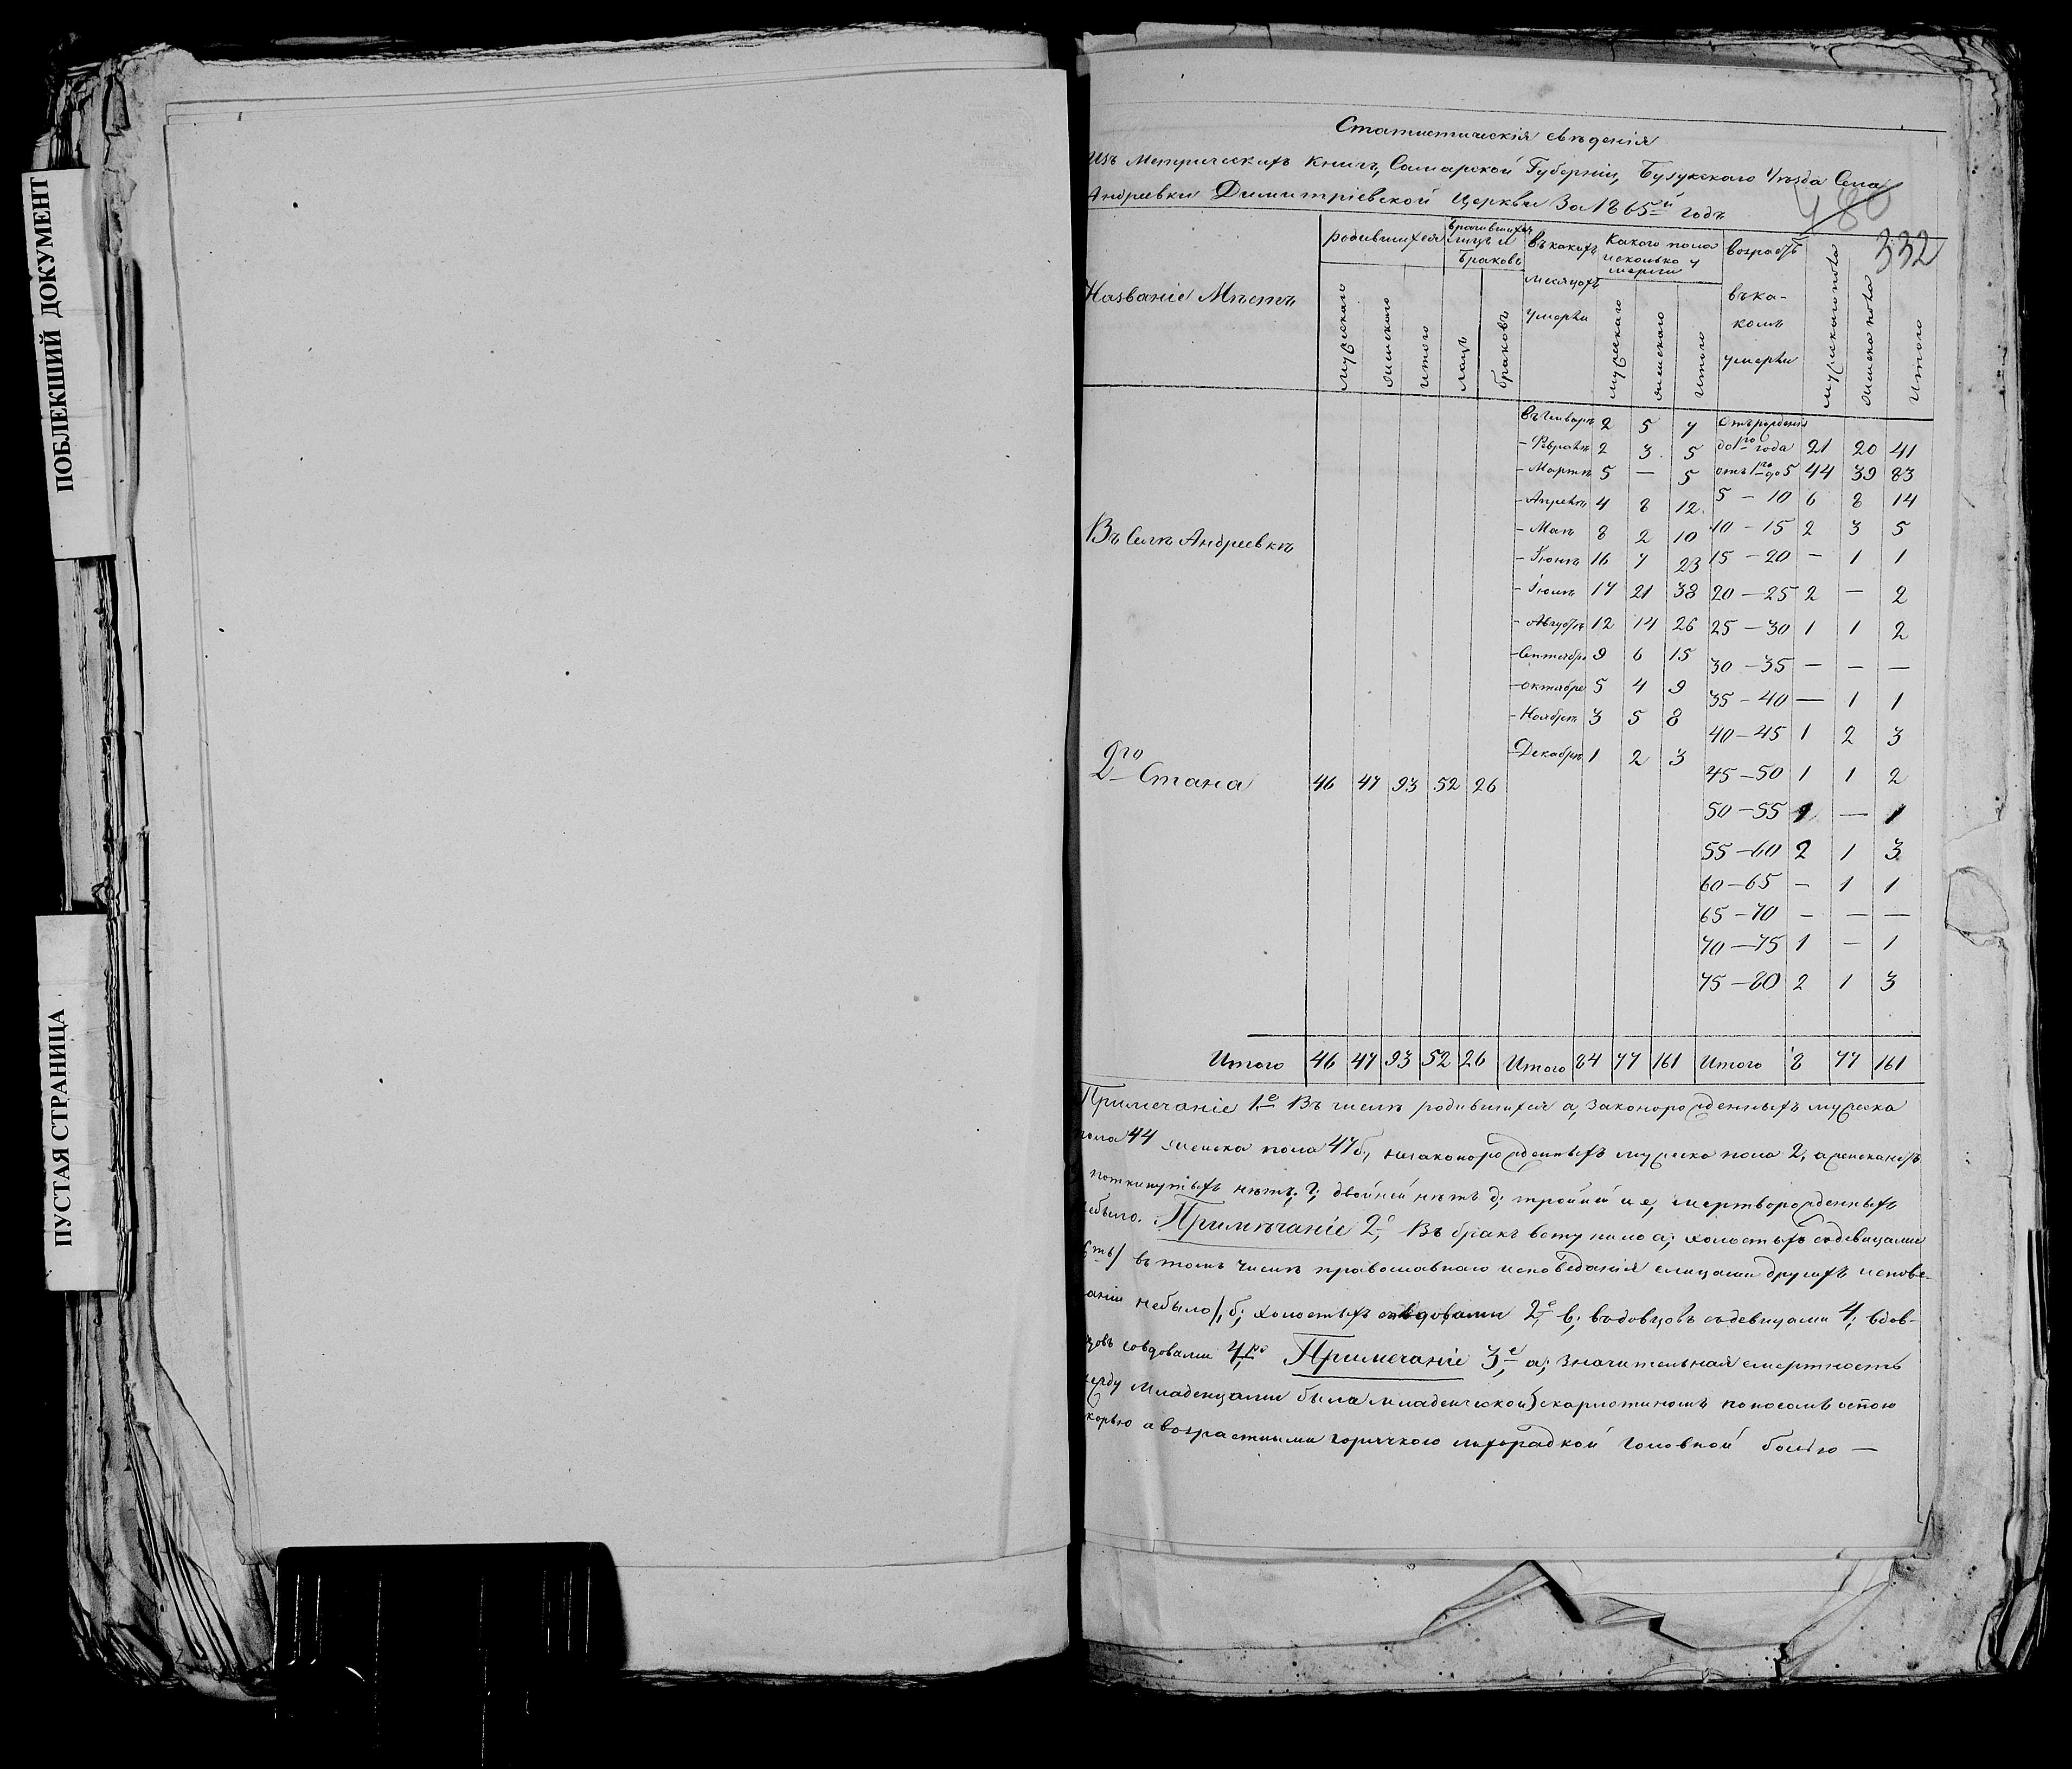 ПОБЛЕКШИЙ ДОКУМЕНТ
ПУСТАЯ СТРАНИЦА
Статистическія свѣденія
Изъ Метрическихъ Книгъ, Самарской Губерніи, Бузукскаго Уѣзда Села
Андреевки Димитріевской Церкви За 1865й годъ
480
332
Названіе Мѣстъ
родившихся
мужескаго
женскаго
итого
лицъ и браковъ
лицъ
браковъ
въ какихъ месяцахъ умерли
Какого пола и сколько умерли
мужескаго
женскаго
Итого
возрастъ въ какомъ умерли
мужескаго пола
женска пола
Итого
Въ Селѣ Андреевкѣ
2го Стана 46 47 93 52 26
въ Генварѣ 2 5 7
- Февралѣ 2 3 5
- Мартѣ 5 — 5
- Апрелѣ 4 8 12
- Маѣ 8 2 10
- Іюнѣ 16 7 23
- Іюлѣ 17 21 38
- Августѣ 12 14 26
- Сентябре 9 6 15
- октябре 5 4 9
- Ноябрѣ 3 5 8
- Декабрѣ 1 2 3
Отъ рожденія
до 1го года 21 20 41
отъ 1го до 5 44 39 83
5 — 10 6 8 14
10 — 15 2 3 5
15 — 20 — 1 1
20 — 25 2 — 2
25 — 30 1 1 2
30 — 35 — — —
35 — 40 — 1 1
40 — 45 1 2 3
45 — 50 1 1 2
50 — 55 1 — 1
55 — 60 2 1 3
60 — 65 — 1 1
65 — 70 — — —
70 — 75 1 — 1
75 — 80 2 1 3
Итого 46 47 93 52 26 Итого 84 77 161 Итого 8 77 161
Примечаніе 1.е Въ числѣ родившихся а, Законорожденныхъ мужеска
пола 44 женска пола 47 б, незаконорожденныхъ мужеска пола 2,
поткинутыхъ нѣтъ; г; двойней нѣтъ д; тройни и е, мертворожденныхъ
небыло. Примѣчаніе 2е, Въ бракъ вступило а; холостыхъ съ девицами
въ томъ числѣ православнаго исповеданія слицами другихъ испове-
даніи небыло/, б; холостыхъ совдовами 2е в; вдовцовъ съ девицами 4; вдов-
цовъ совдовами Примечаніе 3е а; Значительная смертность
между Младенцами была младенческой, скарлотиномъ поносомъ оспою
корью а возрастными горячкою лихорадкой головной болью —